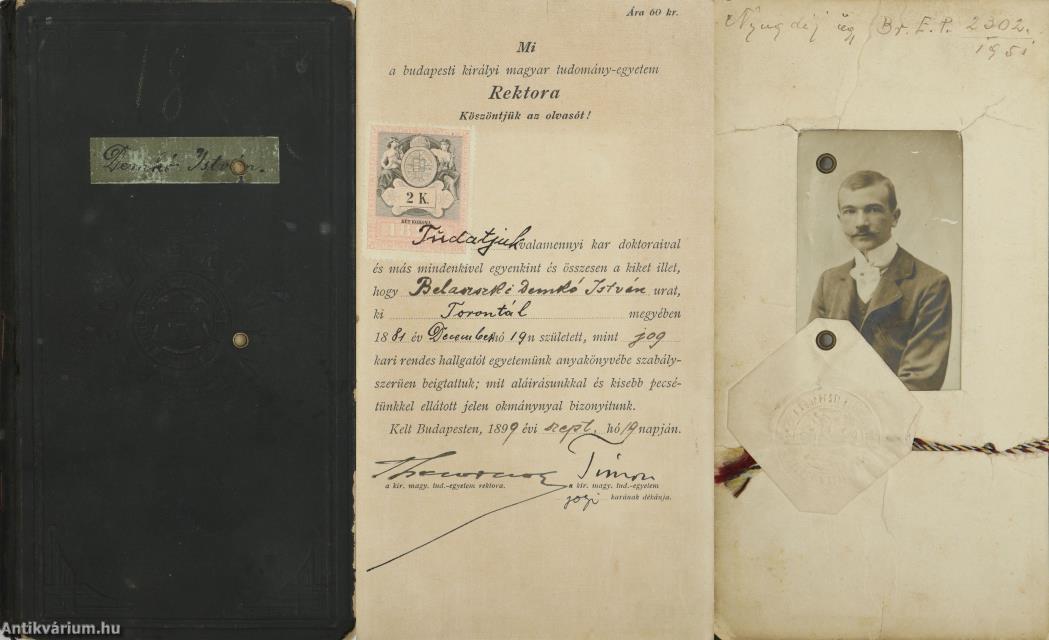 18
Demkó István.
Ára 60 kr.
Mi
a budapesti királyi magyar tudomány-egyetem
Rektora
Köszöntjük az olvasót!
2 K.
KÉT KORONA
18
Tudatjuk valamennyi kar doktoraival
és más mindenkivel egyenkint és összesen a kiket illet,
hogy Belaszki Demkó István urat,
ki Torontál megyében
1881 év December hó 19n született, mint jog
kari rendes hallgatót egyetemünk anyakönyvébe szabály-
szerüen beigtattuk; mit aláirásunkkal és kisebb pecsé-
tünkkel ellátott jelen okmánynyal bizonyitunk.
Kelt Budapesten, 1899 évi szept. hó 19 napján.
Timon
a kir. magy. tud.-egyetem rektora.
a kir. magy. tud.-egyetem
jogi karának dékánja.
Nyugdij üg. Br. E. P. 2302.
1951
Antikvárium.hu